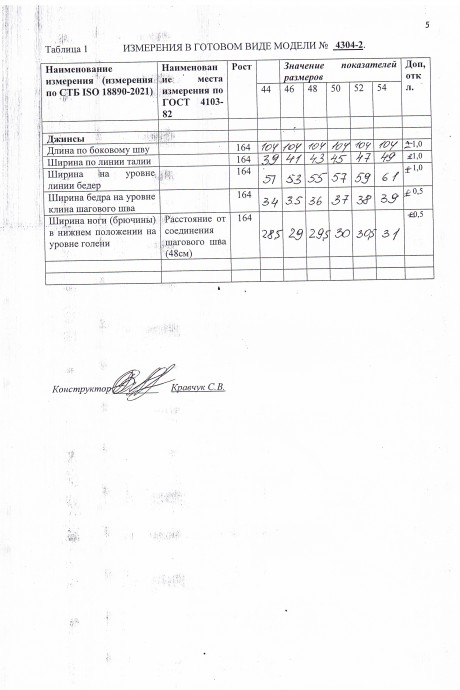 5
Таблица 1 ИЗМЕРЕНИЯ В ГОТОВОМ ВИДЕ МОДЕЛИ № 4304-2.
Наименование измерения (измерения по СТБ ISO 18890-2021) Наименован ие места измерения по ГОСТ 4103-82 Рост Значение показателей размеров Доп, отк л.
44 46 48 50 52 54
Джинсы
Длина по боковому шву 164 104 104 104 104 104 104 ±1,0
Ширина по линии талии 164 39 41 43 45 47 49 ±1,0
Ширина на уровне линии бедер 164 51 53 55 57 59 61 ±1,0
Ширина бедра на уровне клина шагового шва 164 34 35 36 37 38 39 ±0,5
Ширина ноги (брючины) в нижнем положении на уровне голени Расстояние от соединения шагового шва (48см) 164 28,5 29 29,5 30 30,5 31 ±0,5
Конструктор Кравчук С.В.